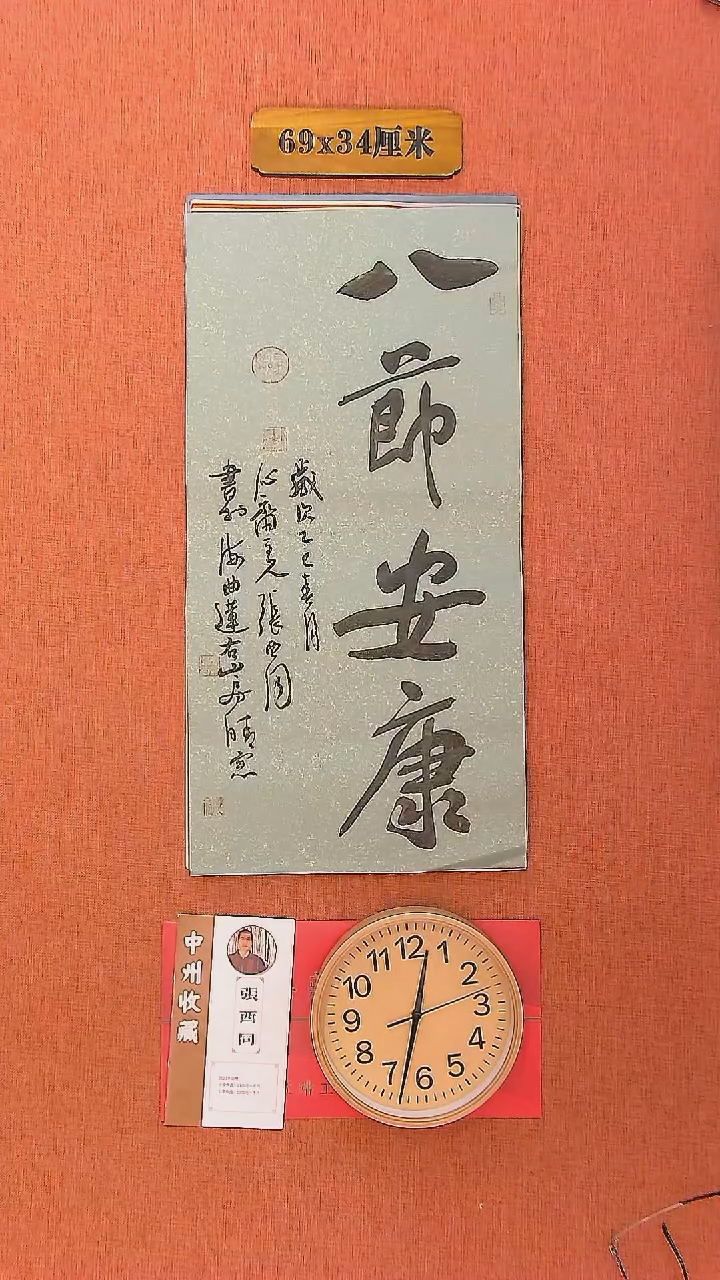 69x34厘米
八節安康
歲次乙巳春月
沁爾亮張西同
書於海曲蓮右山房晴窓
中州收藏
張西同
12
1
2
3
4
5
6
7
8
9
10
11